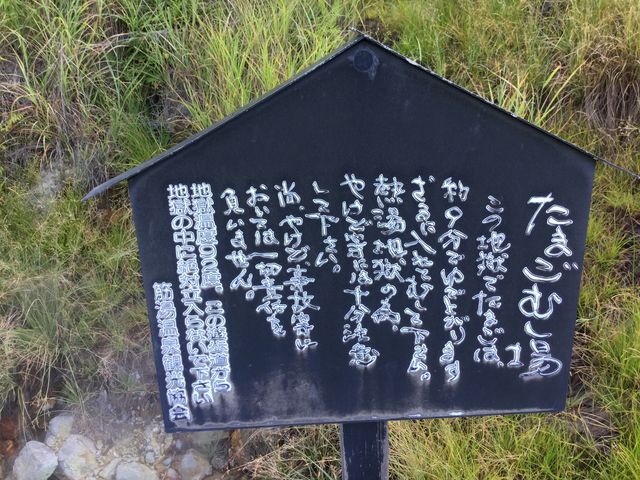 たまごむし場
この地獄でたまごは、
約9分でゆであがります
ざるに入れてむして下さい。
熱湯地獄の為、
やけど等には十分注意
して下さい。
尚、やけど事故等に
おいては一切責任を
負いません。
地獄温度98度。この遊歩道から
地獄の中に絶対立入らないで下さい
筋湯温泉観光協会